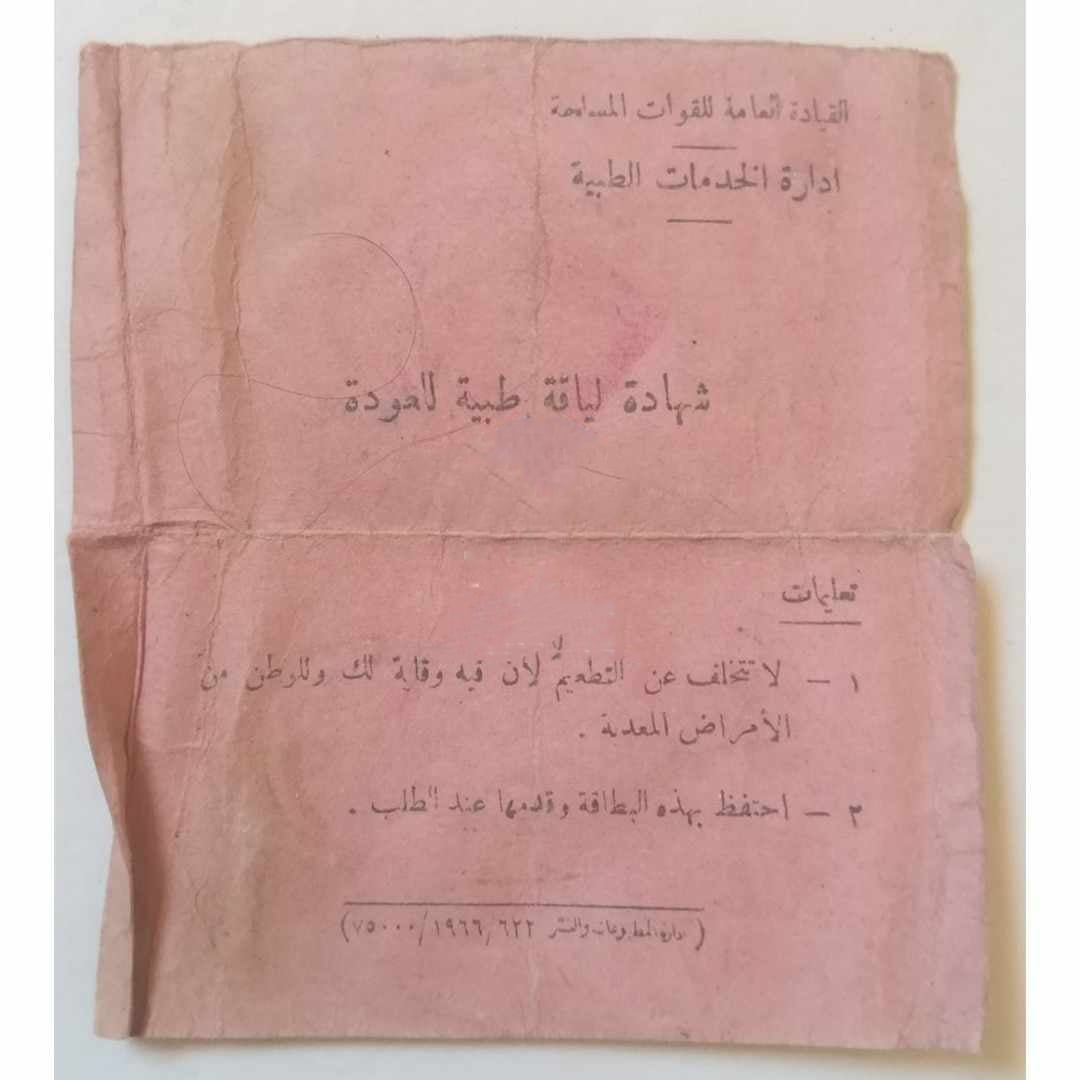 القيادة العامة للقوات المسلحة
ادارة الخدمات الطبية
شهادة لياقة طبية للعودة
تعليمات
١ – لا تتخلف عن التطعيم لأن فيه وقاية لك وللوطن من
الأمراض المعدية .
٢ – احتفظ بهذه البطاقة وقدمها عند الطلب .
( ادارة المطبوعات والنشر ٦٢٢/١٩٦٦/٧٥٠٠٠)